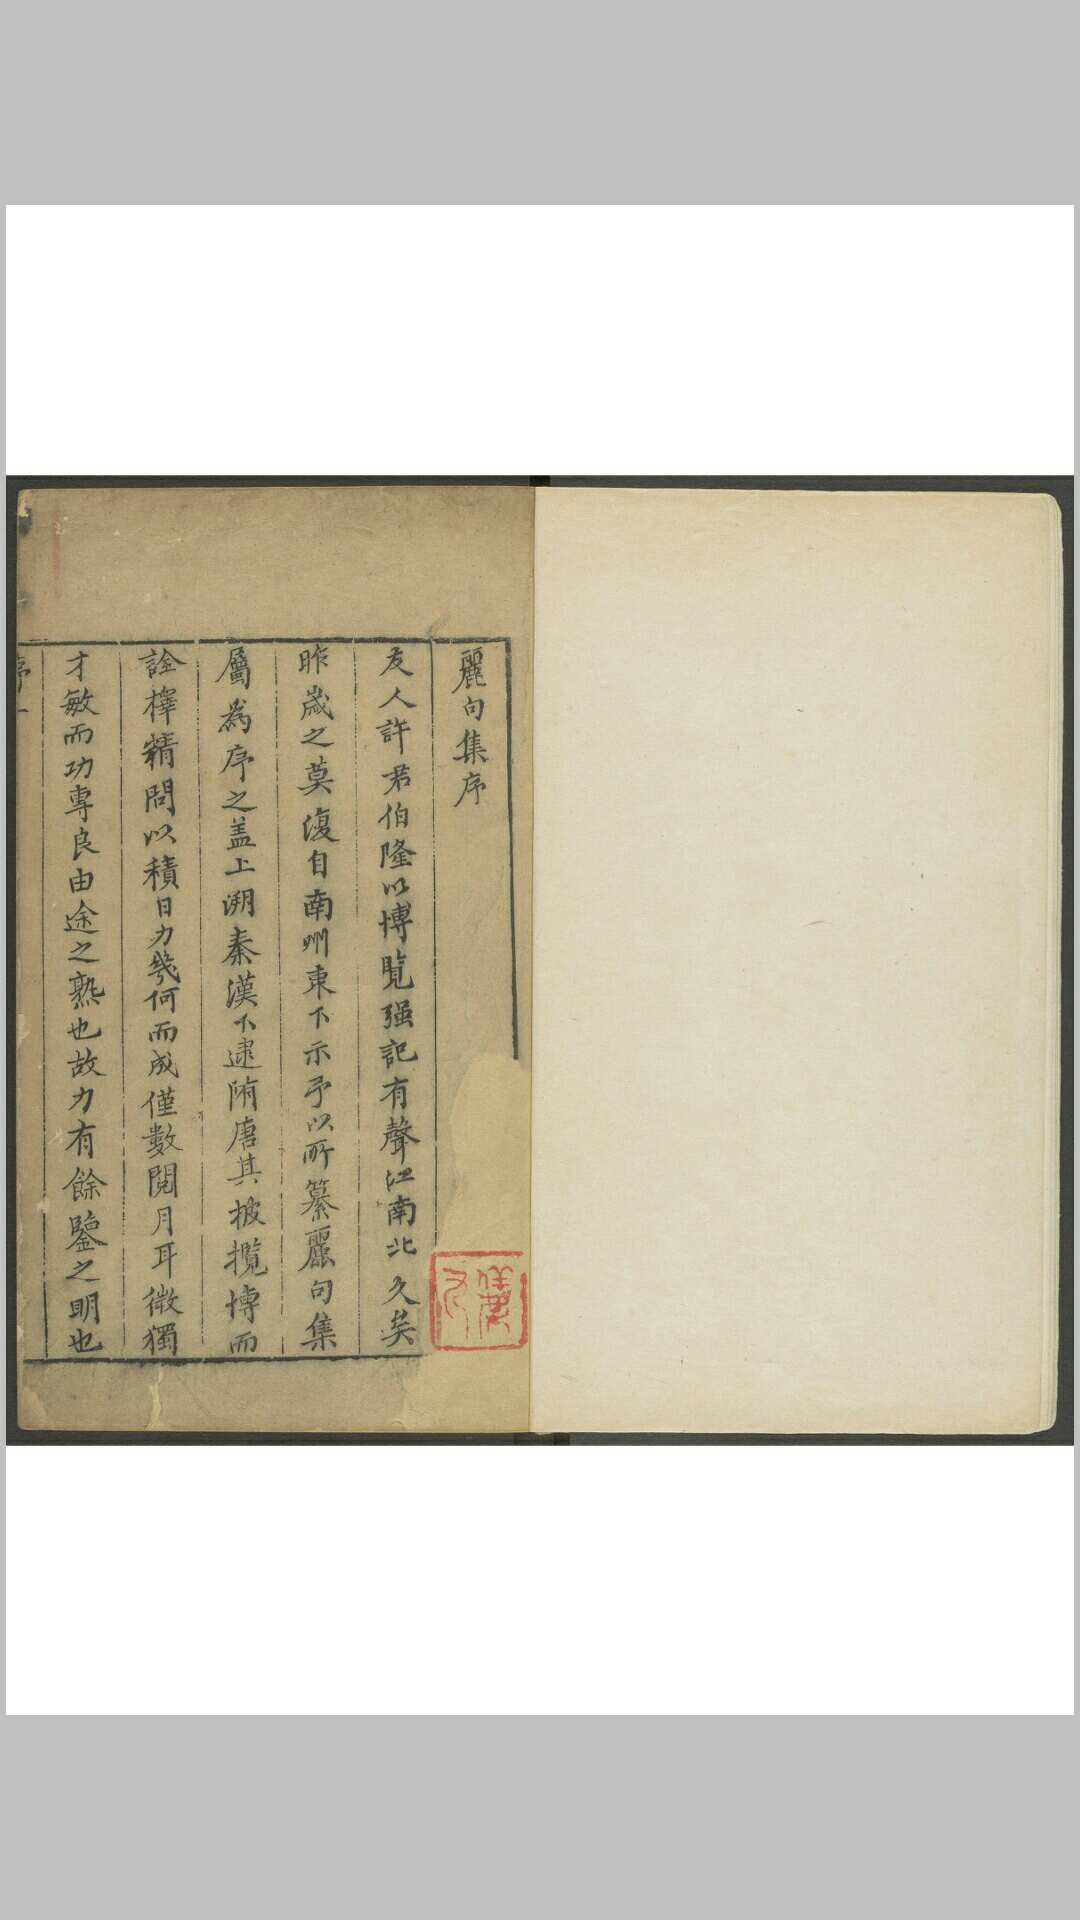 麗句集序
友人許君伯隆以博覽强記有聲江南北久矣
昨歲之莫復自南州東下示予以所纂麗句集
屬為序之盖上溯秦漢下逮隋唐其披攬博而
詮擇精問以積日力幾何而成僅數閱月耳微獨
才敏而功專良由途之熟也故力有餘鑒之明也
序一